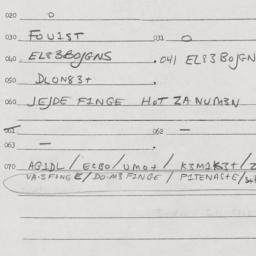 020 0
030 FOU1ST 031 0
040 EL83BOJGNS . 041 EL83BOJGN
050 DLON83+
060 JEJDE FINGE HOT ZA NUM3N
061 — 062 —
063 —
070 AGIDL / ECBO / UMO+ / K3M1K3+ / Z
VA.3FINGE / DO.M3 FINGE / PITENASTE /